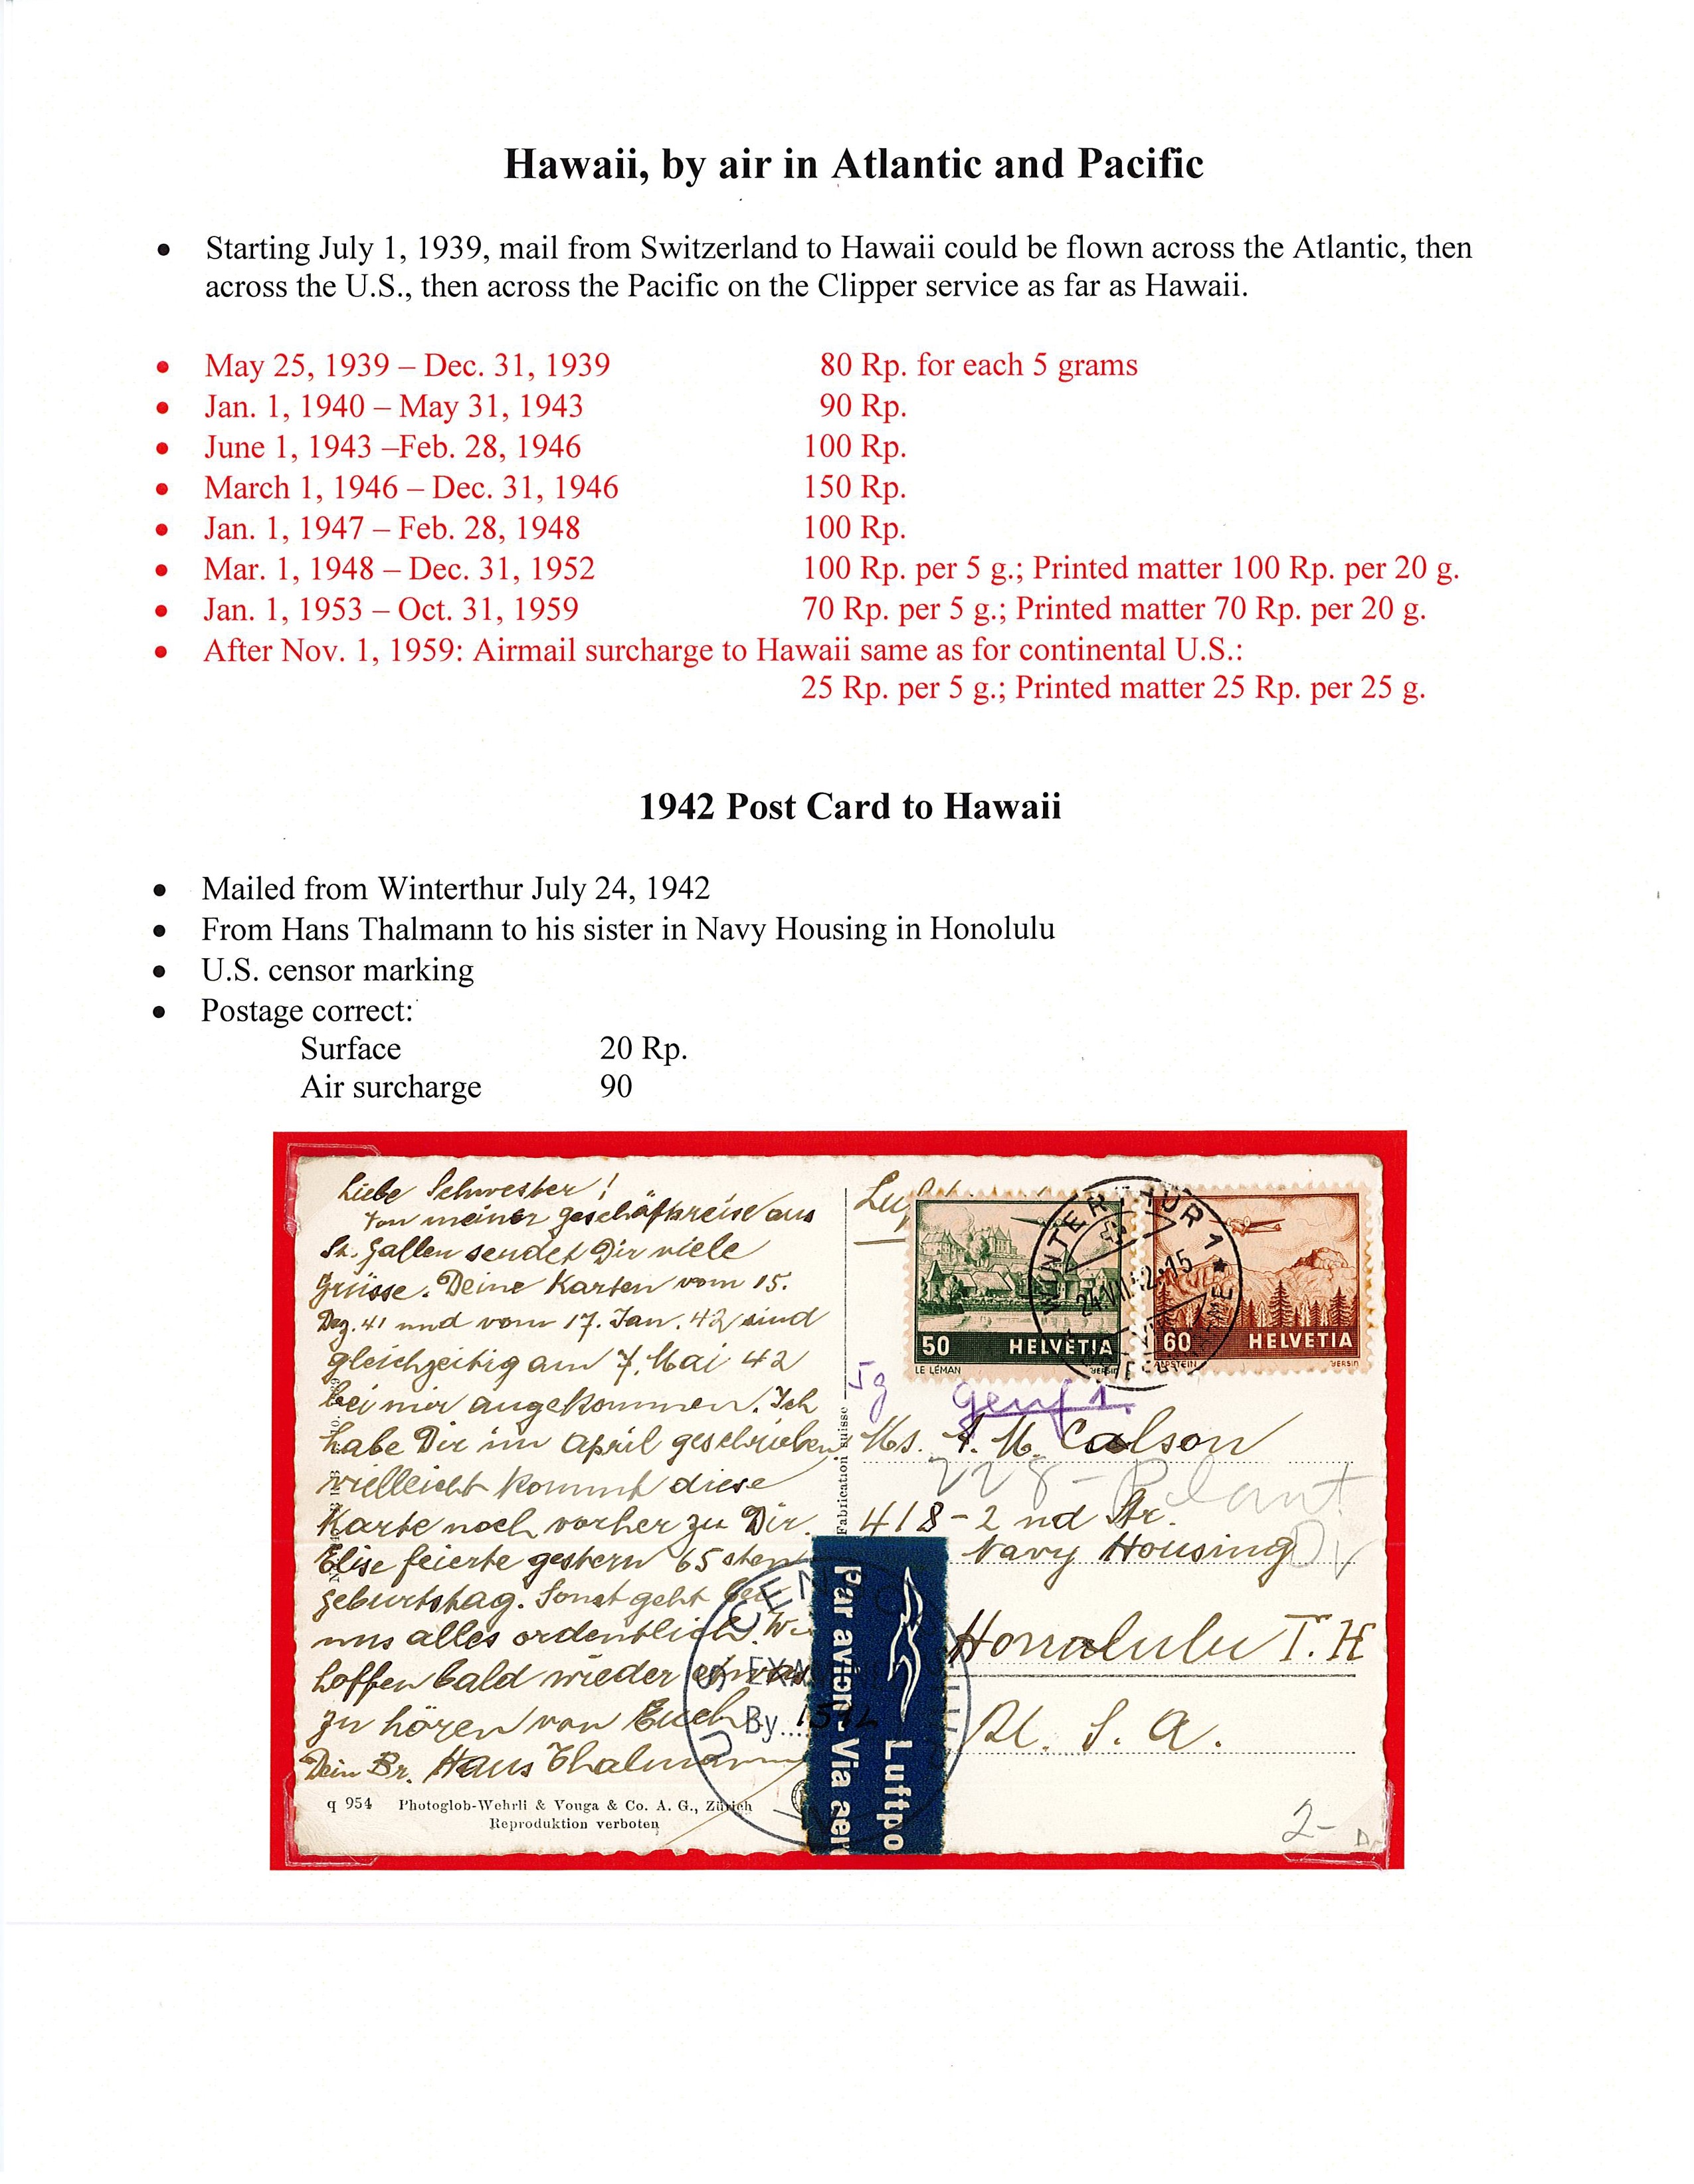 Hawaii, by air in Atlantic and Pacific
• Starting July 1, 1939, mail from Switzerland to Hawaii could be flown across the Atlantic, then
across the U.S., then across the Pacific on the Clipper service as far as Hawaii.
• May 25, 1939 – Dec. 31, 1939 80 Rp. for each 5 grams
• Jan. 1, 1940 – May 31, 1943 90 Rp.
• June 1, 1943 –Feb. 28, 1946 100 Rp.
• March 1, 1946 – Dec. 31, 1946 150 Rp.
• Jan. 1, 1947 – Feb. 28, 1948 100 Rp.
• Mar. 1, 1948 – Dec. 31, 1952 100 Rp. per 5 g.; Printed matter 100 Rp. per 20 g.
• Jan. 1, 1953 – Oct. 31, 1959 70 Rp. per 5 g.; Printed matter 70 Rp. per 20 g.
• After Nov. 1, 1959: Airmail surcharge to Hawaii same as for continental U.S.:
25 Rp. per 5 g.; Printed matter 25 Rp. per 25 g.
1942 Post Card to Hawaii
• Mailed from Winterthur July 24, 1942
• From Hans Thalmann to his sister in Navy Housing in Honolulu
• U.S. censor marking
• Postage correct:
Surface 20 Rp.
Air surcharge 90
Liebe Schwester!
Von meiner Geschäftsreise aus
St. Gallen sendet Dir viele
Grüsse. Deine Karten vom 15.
Dez. 41 und vom 17. Jan. 42 sind
gleichzeitig am 7. Mai 42
bei mir angekommen. Ich
habe Dir im April geschrieben
vielleicht kommt diese
Karte noch vorher zu Dir.
Elise feierte gestern 65 sten
Geburtstag. Sonst geht bei
uns alles ordentlich. Wi
hoffen bald wieder etwas
zu hören von Euch
Dein Br. Hans Thalmann
q 954 Photoglob-Wehrli & Vouga & Co. A. G., Zürich
Reproduktion verboten
Fabrication suisse
Luf
50 HELVETIA
LE LÉMAN
60 HELVETIA
ALPSTEIN
WINTERTHUR 1
24.VII.42-15
5g
Genf 1.
Ms. A. M. Calson
228 - Plant
418 - 2 nd Str.
Navy Housing
Dr
Honolulu T. H
U. S. A.
Par avion - Via aer
Luftpo
U.S. CEN
EXAM
By
2-